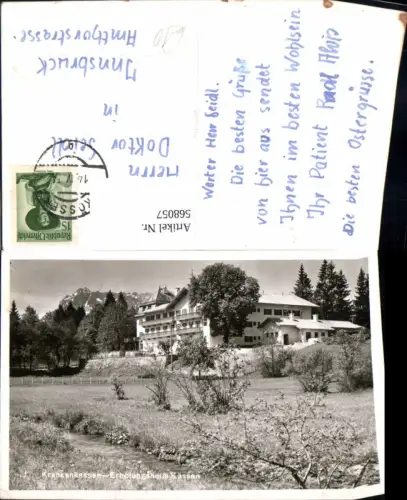 Werter Herr Seidl.
Die besten Grüße
von hier aus sendet
Ihnen im besten Wohlsein
Ihr Patient
Die besten Ostergrüsse.
Herrn
Doktor Seidl
in
Innsbruck
Amthorstrasse.
Artikel Nr.
568057
KÖSSEN
Republik Österreich
Krankenkassen-Erholungsheim Kössen